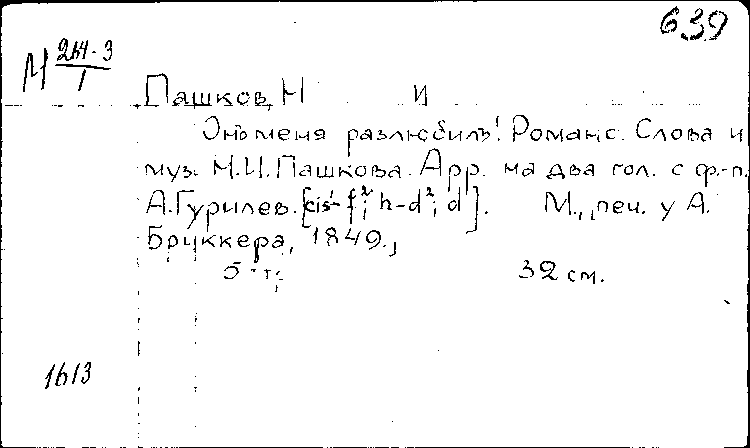 639
М 214-3
1
Пашков, Н И
Онъ меня разлюбилъ! Романс. Слова и
муз. Н.И. Пашкова. Арр. на два гол. с ф.-п.
А. Гурилев. [cis¹-f²; h-d²; d]. М., печ. у А.
Бруккера, 1849.,
5 т;
32 см.
1613